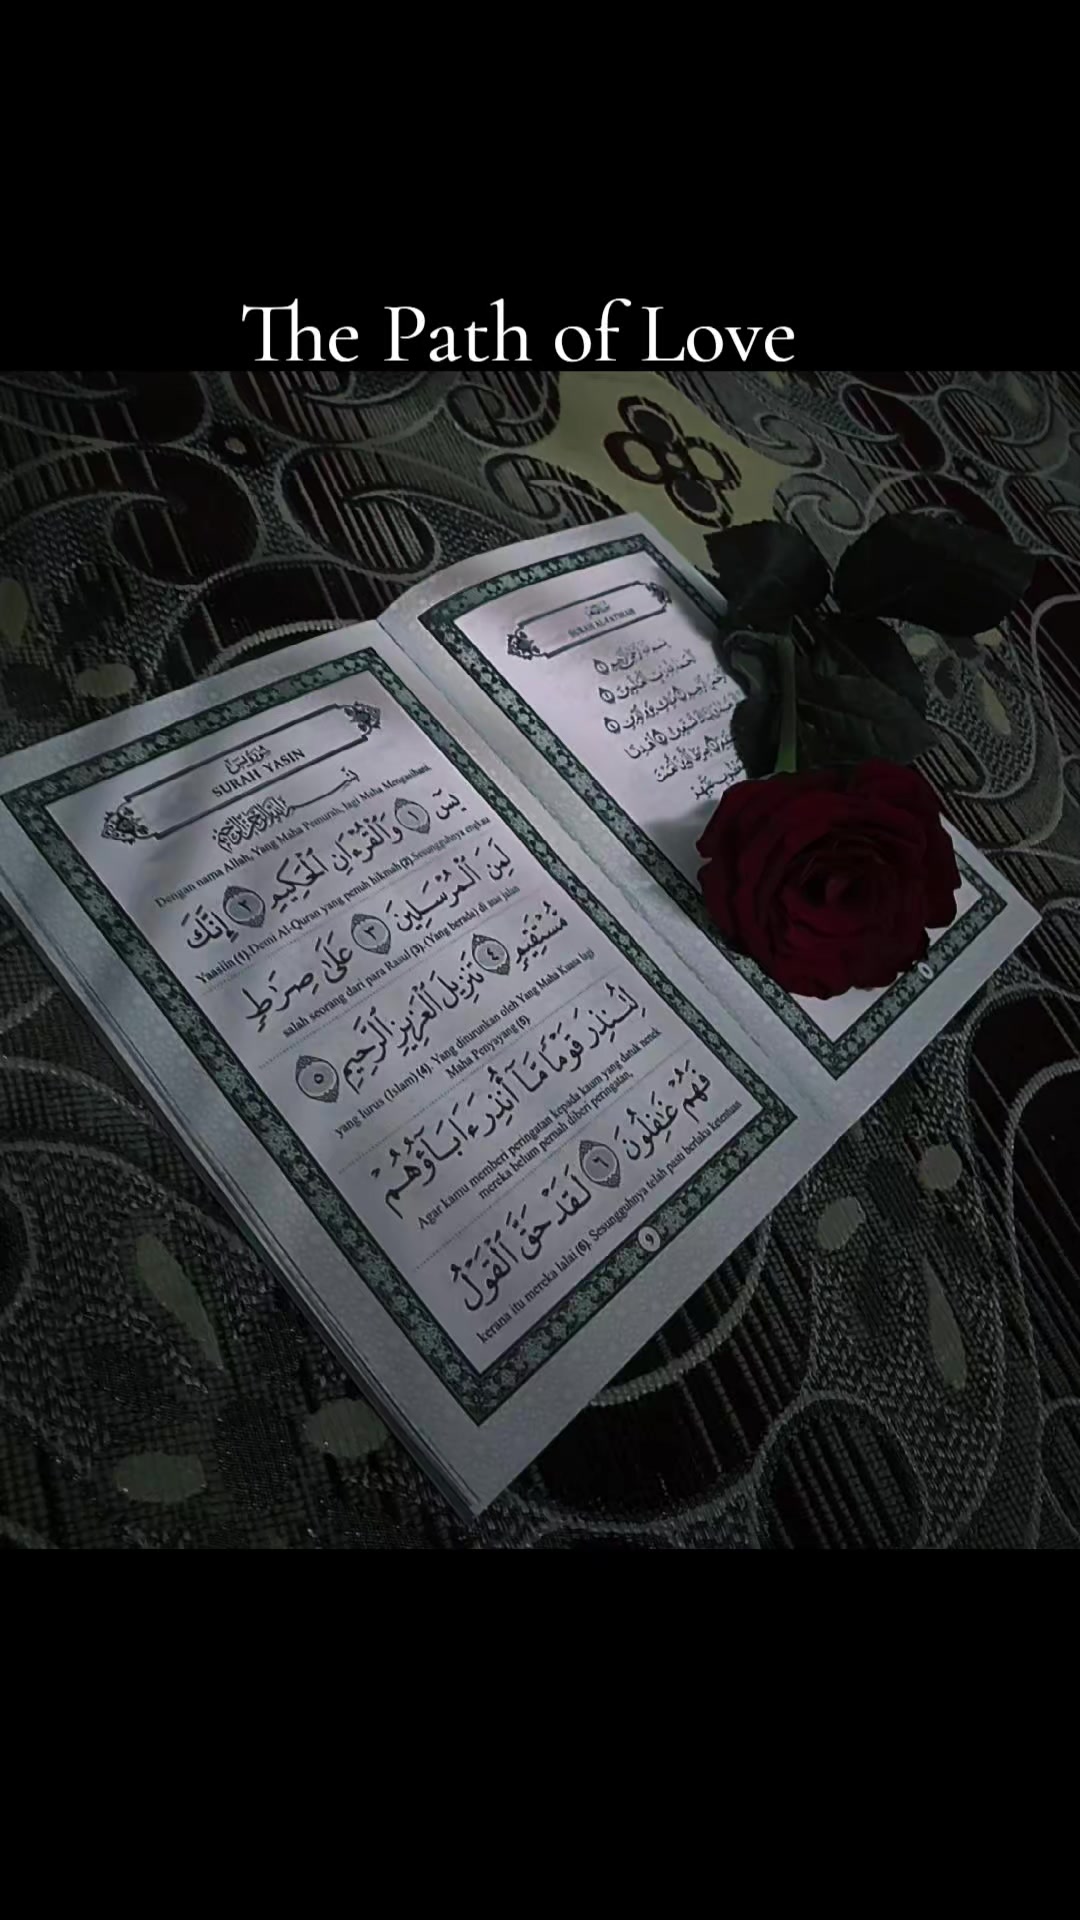 The Path of Love
سورة يس
SURAH YASIN
بسم الله الرحمن الرحيم
Dengan nama Allah, Yang Maha Pemurah, lagi Maha Mengasihani.
يسٓ ١ وَالْقُرْءَانِ الْحَكِيمِ ٢ إِنَّكَ
Yaasiin (1). Demi Al-Quran yang penuh hikmah (2). Sesungguhnya engkau
لَمِنَ الْمُرْسَلِينَ ٣ عَلَىٰ صِرَٰطٍ
salah seorang dari para Rasul (3). (Yang berada) di atas jalan
مُّسْتَقِيمٍ ٤ تَنزِيلَ الْعَزِيزِ الرَّحِيمِ ٥
yang lurus (Islam) (4). Yang diturunkan oleh Yang Maha Kuasa lagi
Maha Penyayang (5)
لِتُنذِرَ قَوْمًا مَّآ أُنذِرَ ءَابَآؤُهُمْ
Agar kamu memberi peringatan kepada kaum yang datuk nenek
mereka belum pernah diberi peringatan,
فَهُمْ غَٰفِلُونَ ٦ لَقَدْ حَقَّ الْقَوْلُ
kerana itu mereka lalai (6). Sesungguhnya telah pasti berlaku ketentuan
SURAH AL-FATIHAH